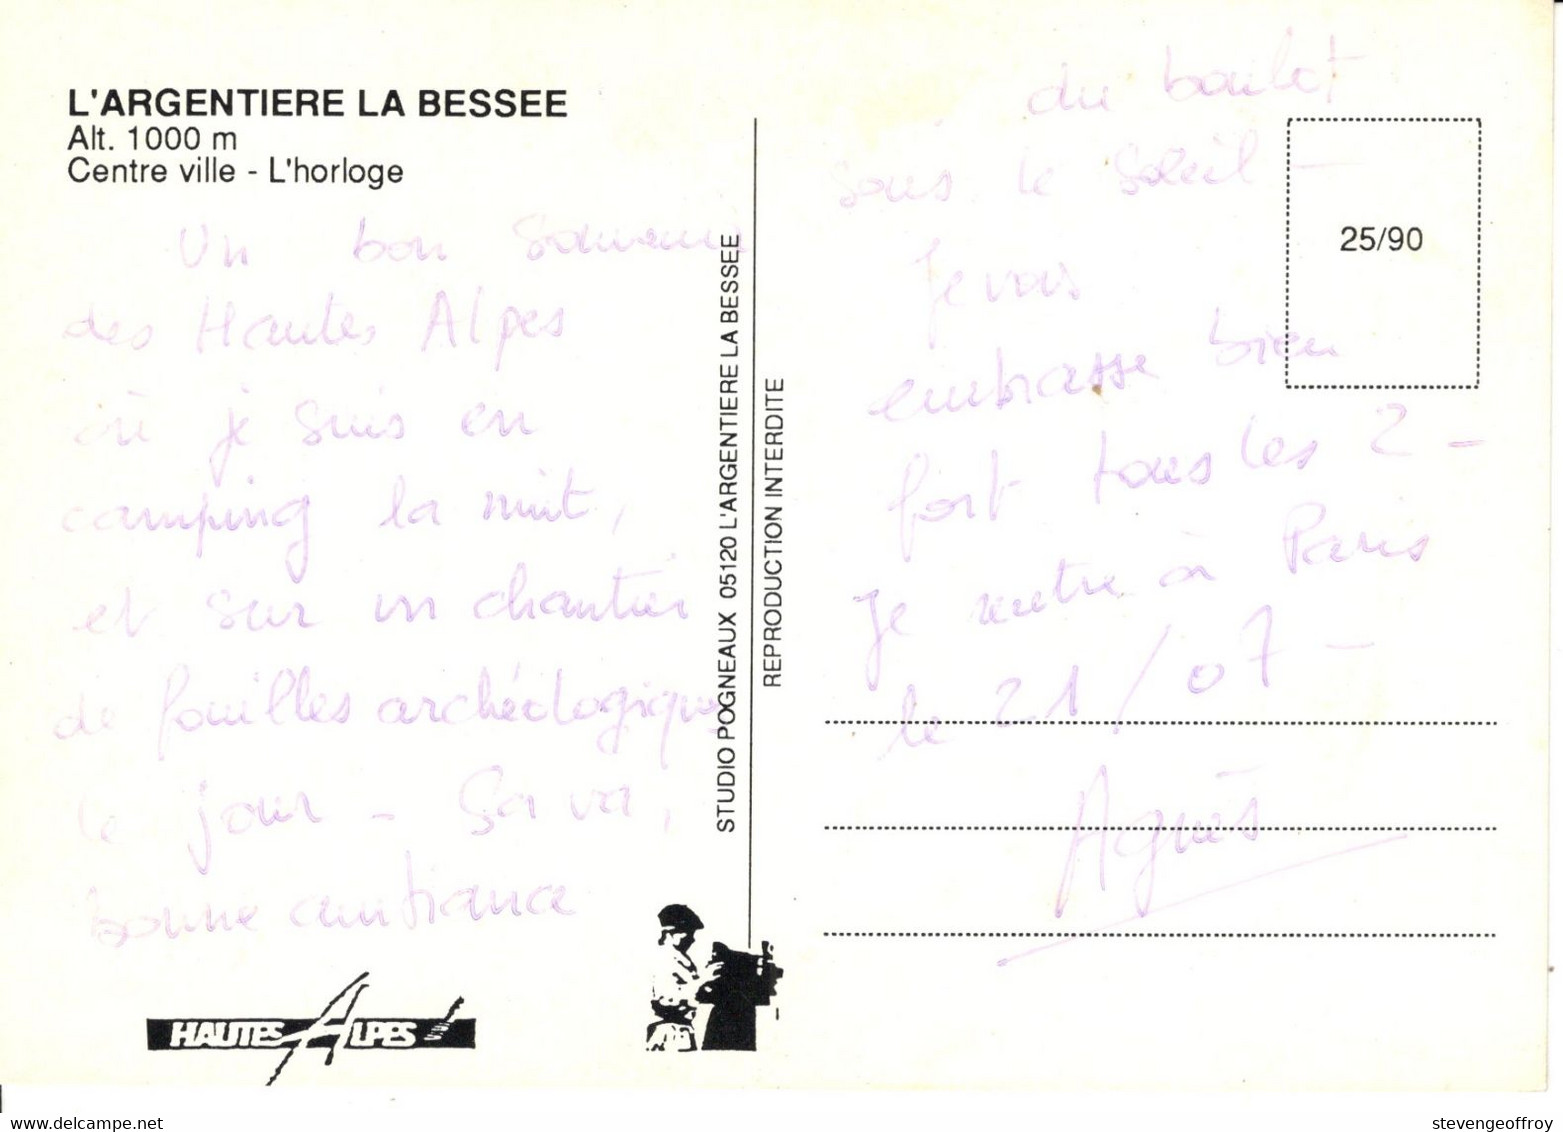 L'ARGENTIERE LA BESSEE
Alt. 1000 m
Centre ville - L'horloge
Un bon souvenir
des Hautes Alpes
où je suis en
camping la nuit,
et sur un chantier
de fouilles archéologiques
le jour - Ça va,
bonne ambiance
HAUTES ALPES
STUDIO POGNEAUX 05120 L'ARGENTIERE LA BESSEE
REPRODUCTION INTERDITE
du boulot
sous le soleil -
Je vous
embrasse bien
fort tous les 2 -
Je rentre à Paris
le 21/07 -
Agnès
25/90
stevengeoffroy